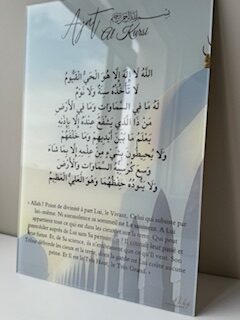 Ayat
Al Kursi
اللَّهُ لَا إِلَٰهَ إِلَّا هُوَ الْحَيُّ الْقَيُّومُ
لَا تَأْخُذُهُ سِنَةٌ وَلَا نَوْمٌ
لَهُ مَا فِي السَّمَاوَاتِ وَمَا فِي الْأَرْضِ
مَنْ ذَا الَّذِي يَشْفَعُ عِنْدَهُ إِلَّا بِإِذْنِهِ
يَعْلَمُ مَا بَيْنَ أَيْدِيهِمْ وَمَا خَلْفَهُمْ
وَلَا يُحِيطُونَ بِشَيْءٍ مِنْ عِلْمِهِ إِلَّا بِمَا شَاءَ
وَسِعَ كُرْسِيُّهُ السَّمَاوَاتِ وَالْأَرْضَ
وَلَا يَئُودُهُ حِفْظُهُمَا وَهُوَ الْعَلِيُّ الْعَظِيمُ
« Allah ! Point de divinité à part Lui, le Vivant, Celui qui subsiste par
lui-même. Ni somnolence ni sommeil ne Le saisissent. A Lui
appartient tout ce qui est dans les cieux et sur la terre. Qui peut
intercéder auprès de Lui sans Sa permission ? Il connaît leur passé et
leur futur. Et, de Sa science, ils n'embrassent que ce qu'Il veut. Son
Trône déborde les cieux et la terre, dont la garde ne Lui coûte aucune
peine. Et Il est le Très Haut, le Très Grand. »